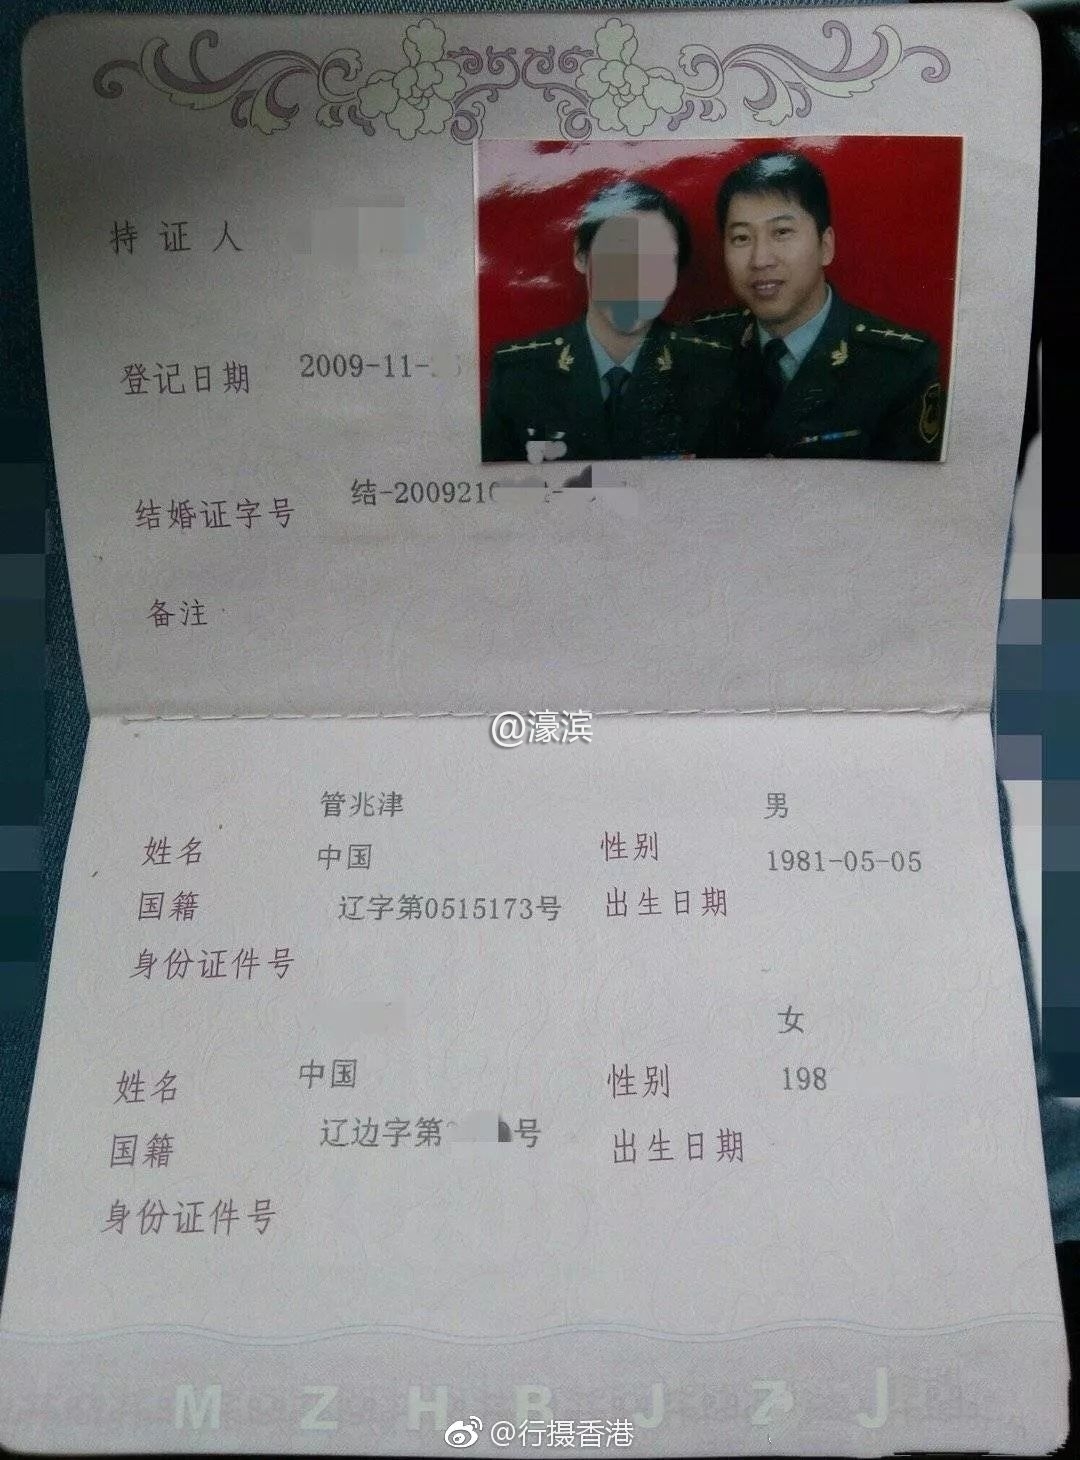 持证人
登记日期 2009-11-
结婚证字号 结-2009210
备注
@濠滨
姓名 管兆津 性别 男
国籍 中国 出生日期 1981-05-05
身份证件号 辽字第0515173号
姓名 性别 女
国籍 中国 出生日期 198
身份证件号 辽边字第 号
MZHBJZJ
@行摄香港